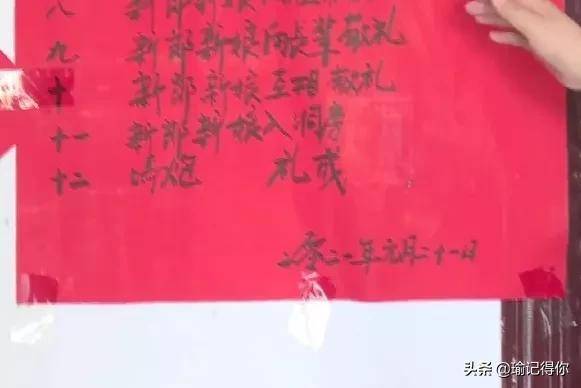 八 新郎新娘向
九 新郎新娘向长辈敬礼
十 新郎新娘互相敬礼
十一 新郎新娘入洞房
十二 鸣炮 礼成
二零二一年元月二十一日
头条 @瑜记得你